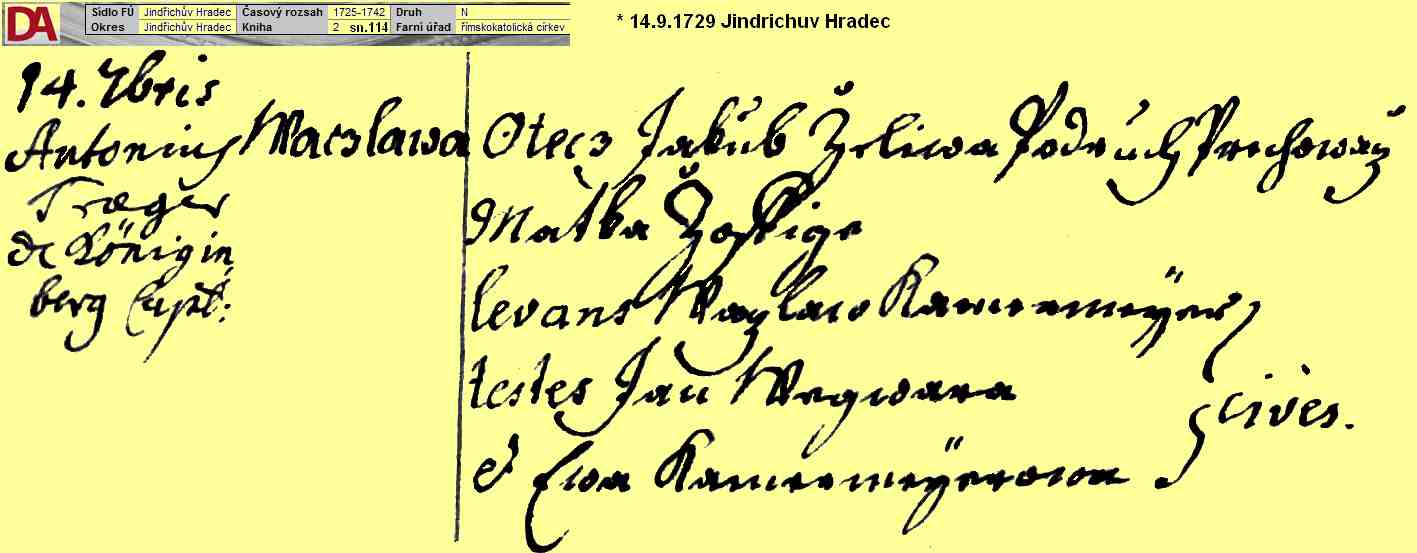 DA Sídlo FÚ Jindřichův Hradec Časový rozsah 1725-1742 Druh N
Okres Jindřichův Hradec Kniha 2 sn.114 Farní úřad římskokatolická církev
* 14.9.1729 Jindrichuv Hradec
14. 7bris
Antonius
Træger
de Königin
berg Capl:
Waczlawa
Otecz Jakub Želiwa Podruh
Matka Žofige
levans Waczlaw Kamermeÿer
testes Jan Wegwara
et Ewa Kamermeÿerowa
cives.